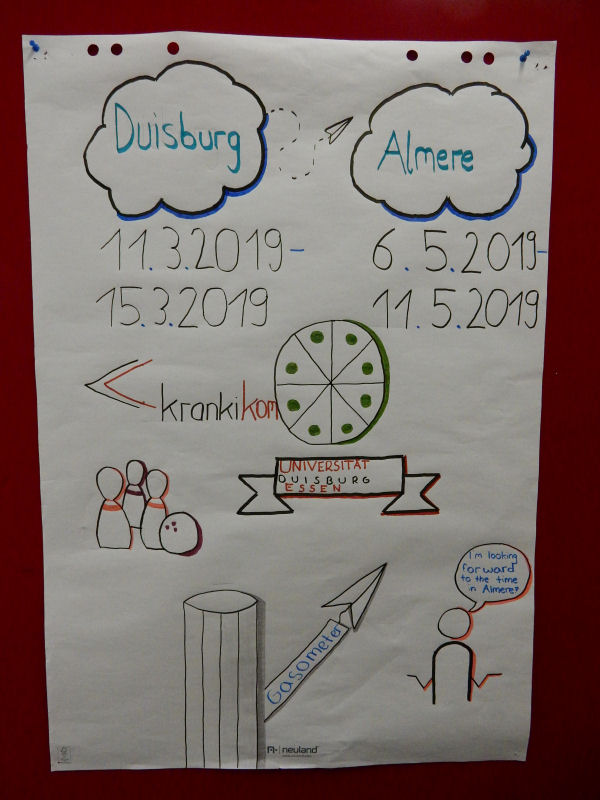 Duisburg
Almere
11.3.2019-
15.3.2019
6.5.2019-
11.5.2019
krankikom
UNIVERSITÄT
DUISBURG
ESSEN
I'm looking
forward
to the time
in Almere?
Gasometer
neuland